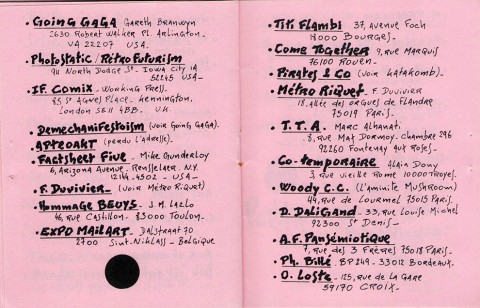 • Going GAGA Gareth Branwyn
2630 Robert Walker Pl. Arlington.
VA 22207 USA.
• Photostatic / Rétrofuturism
911 North Dodge St. Iowa City IA
52245 USA_
• IF. Comix _ Working Press.
85 St Agnes Place_ Kennington,
London SE11 4BB. U.K.
• Demechanifestoism (voir Going GAGA).
• Apteokt (perdu l'adresse).
• Factsheet Five _ Mike Gunderloy
6, Arizona Avenue_ Rensselaer N.Y.
12144.4502_ USA_
• F. Duvivier_ (voir Métro Riquet)
• Hommage BEUYS_ J.M. Lazlo
46, rue Castillon. 83000 Toulon_
• EXPO MAILART_ Dalstraat 70
2700 Sint-Niklass_ Belgique
• Titi Flambi 37, avenue Foch
18000 Bourges_
• Come Together 9, rue Marquis
76100 Rouen_
• Pirates & Co (voir Katakomb)_
• Métro Riquet_ F. Duvivier
18. Allée des orgues de Flandre
75019 Paris_
• T.T.A. Marc Alhanati
8, rue Max Dormoy_ Chambre 296
92260 Fontenay aux Roses_
• Co-temporaire Alain Dony
3, rue vieille Rome 10000 Troyes_
• Woody C.C. (L'aminite Mushroom)
49, rue de Lourmel 75015 Paris_
• D. Daligand_ 33, rue Louise Michel
92300 St Denis_
• A.F. Pansémiotique
7, rue des 3 Frères 75018 Paris_
• Ph. Billé_ BP 249_ 33012 Bordeaux_
• O. Loste_ 125, rue de la Gare
59170 CROIX_